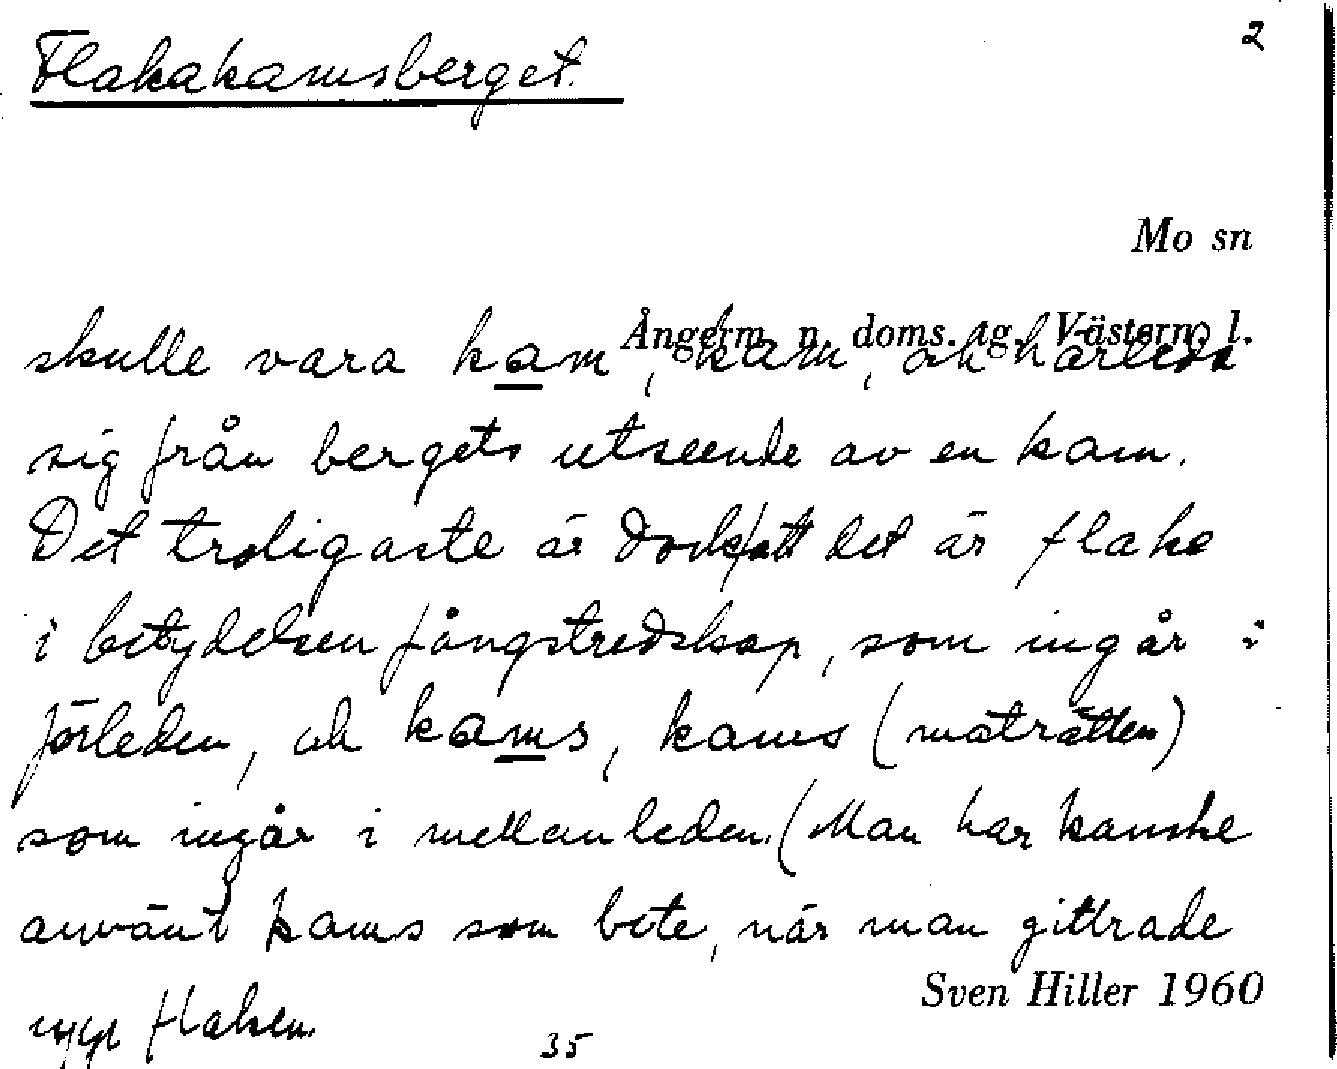 2
Flakakamsberget.
Mo sn
Ångerm. n. doms. tg. Västern. l.
skulle vara kam, kam, och härleda
sig från bergets utseende av en kam.
Det troligaste är dock att det är flake
i betydelsen fångstredskap, som ingår i
förleden, och kams, kams (maträtten)
som ingår i mellanleden. (Man har kanske
använt kams som bete, när man gillrade
upp flaken.
Sven Hiller 1960
35